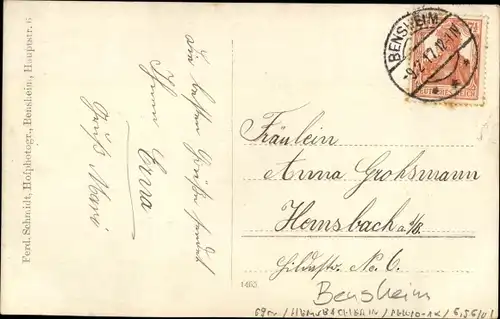 Ferd. Schmidt, Hofphotogr., Bensheim, Hauptstr. 6
Die besten Grüße sendet
Ihnen Erna
Gruß Mari
BENSHEIM
-9.2.17.
DEUTSCHES REICH
Fräulein
Anna Grohsmann
Hemsbach a/B.
No. 6
1463
Bensheim